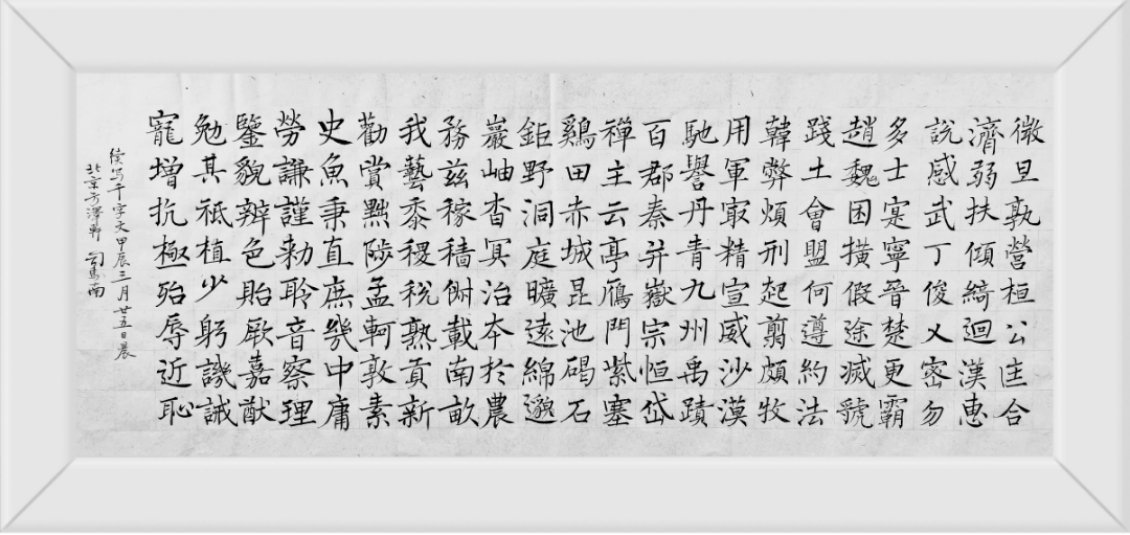 微旦孰營桓公匡合
濟弱扶傾綺迴漢惠
說感武丁俊乂密勿
多士寔寧晉楚更霸
趙魏困橫假途滅虢
踐土會盟何遵約法
韓弊煩刑起翦頗牧
用軍冣精宣威沙漠
馳譽丹青九州禹蹟
百郡秦并嶽宗恒岱
禪主云亭鴈門紫塞
鷄田赤城昆池碣石
鉅野洞庭曠遠綿邈
巖岫杳冥治本於農
務茲稼穡俶載南畝
我藝黍稷稅熟貢新
勸賞黜陟孟軻敦素
史魚秉直庶幾中庸
勞謙謹勅聆音察理
鑒貌辨色貽厥嘉猷
勉其祗植少躬譏誡
寵增抗極殆辱近恥
续写千字文甲辰三月廿五日晨
北京方澤軒 司馬南